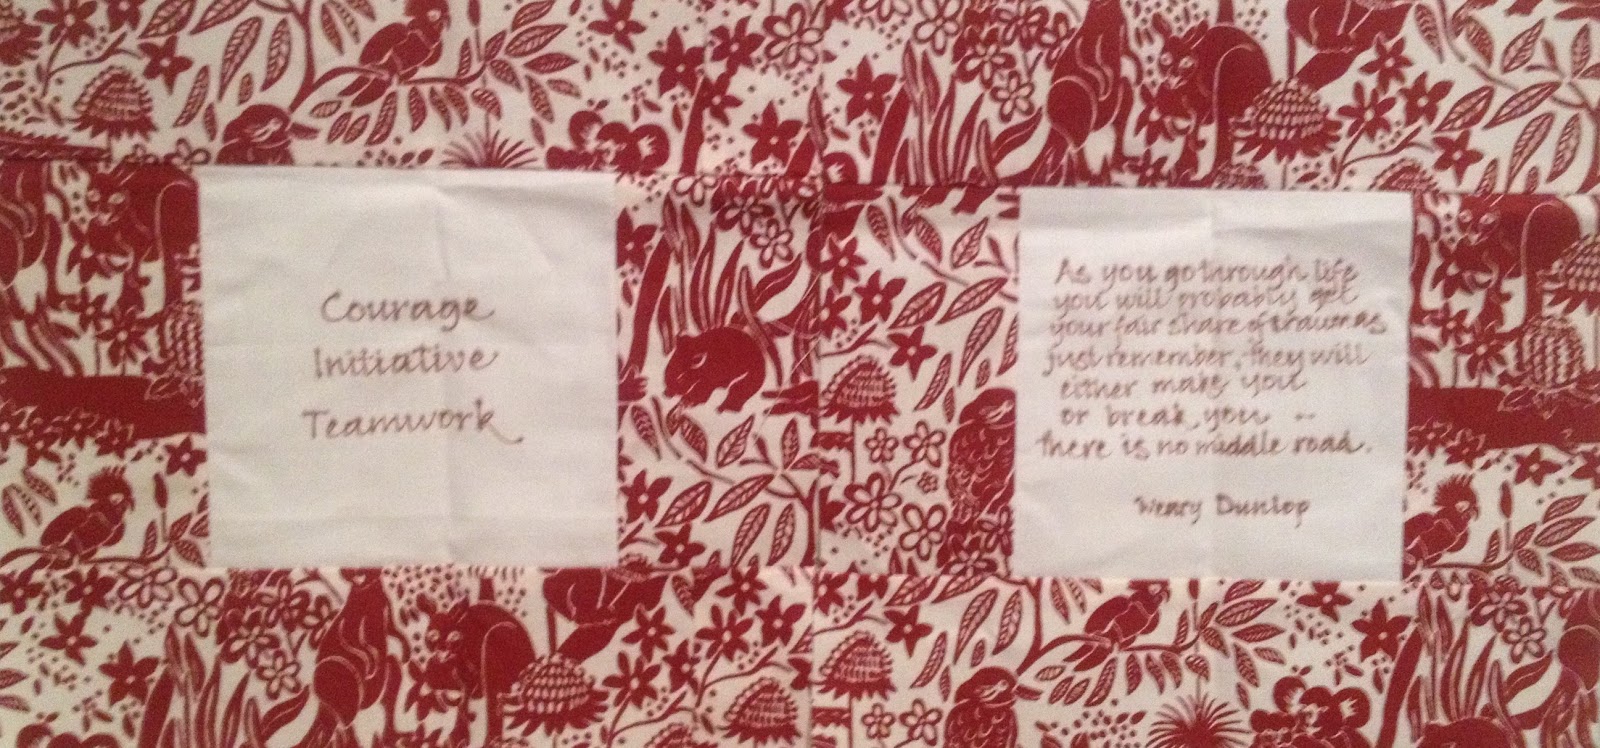 Courage
Initiative
Teamwork
As you go through life
you will probably get
your fair share of traumas
just remember, they will
either make you
or break you --
there is no middle road.
Weary Dunlop